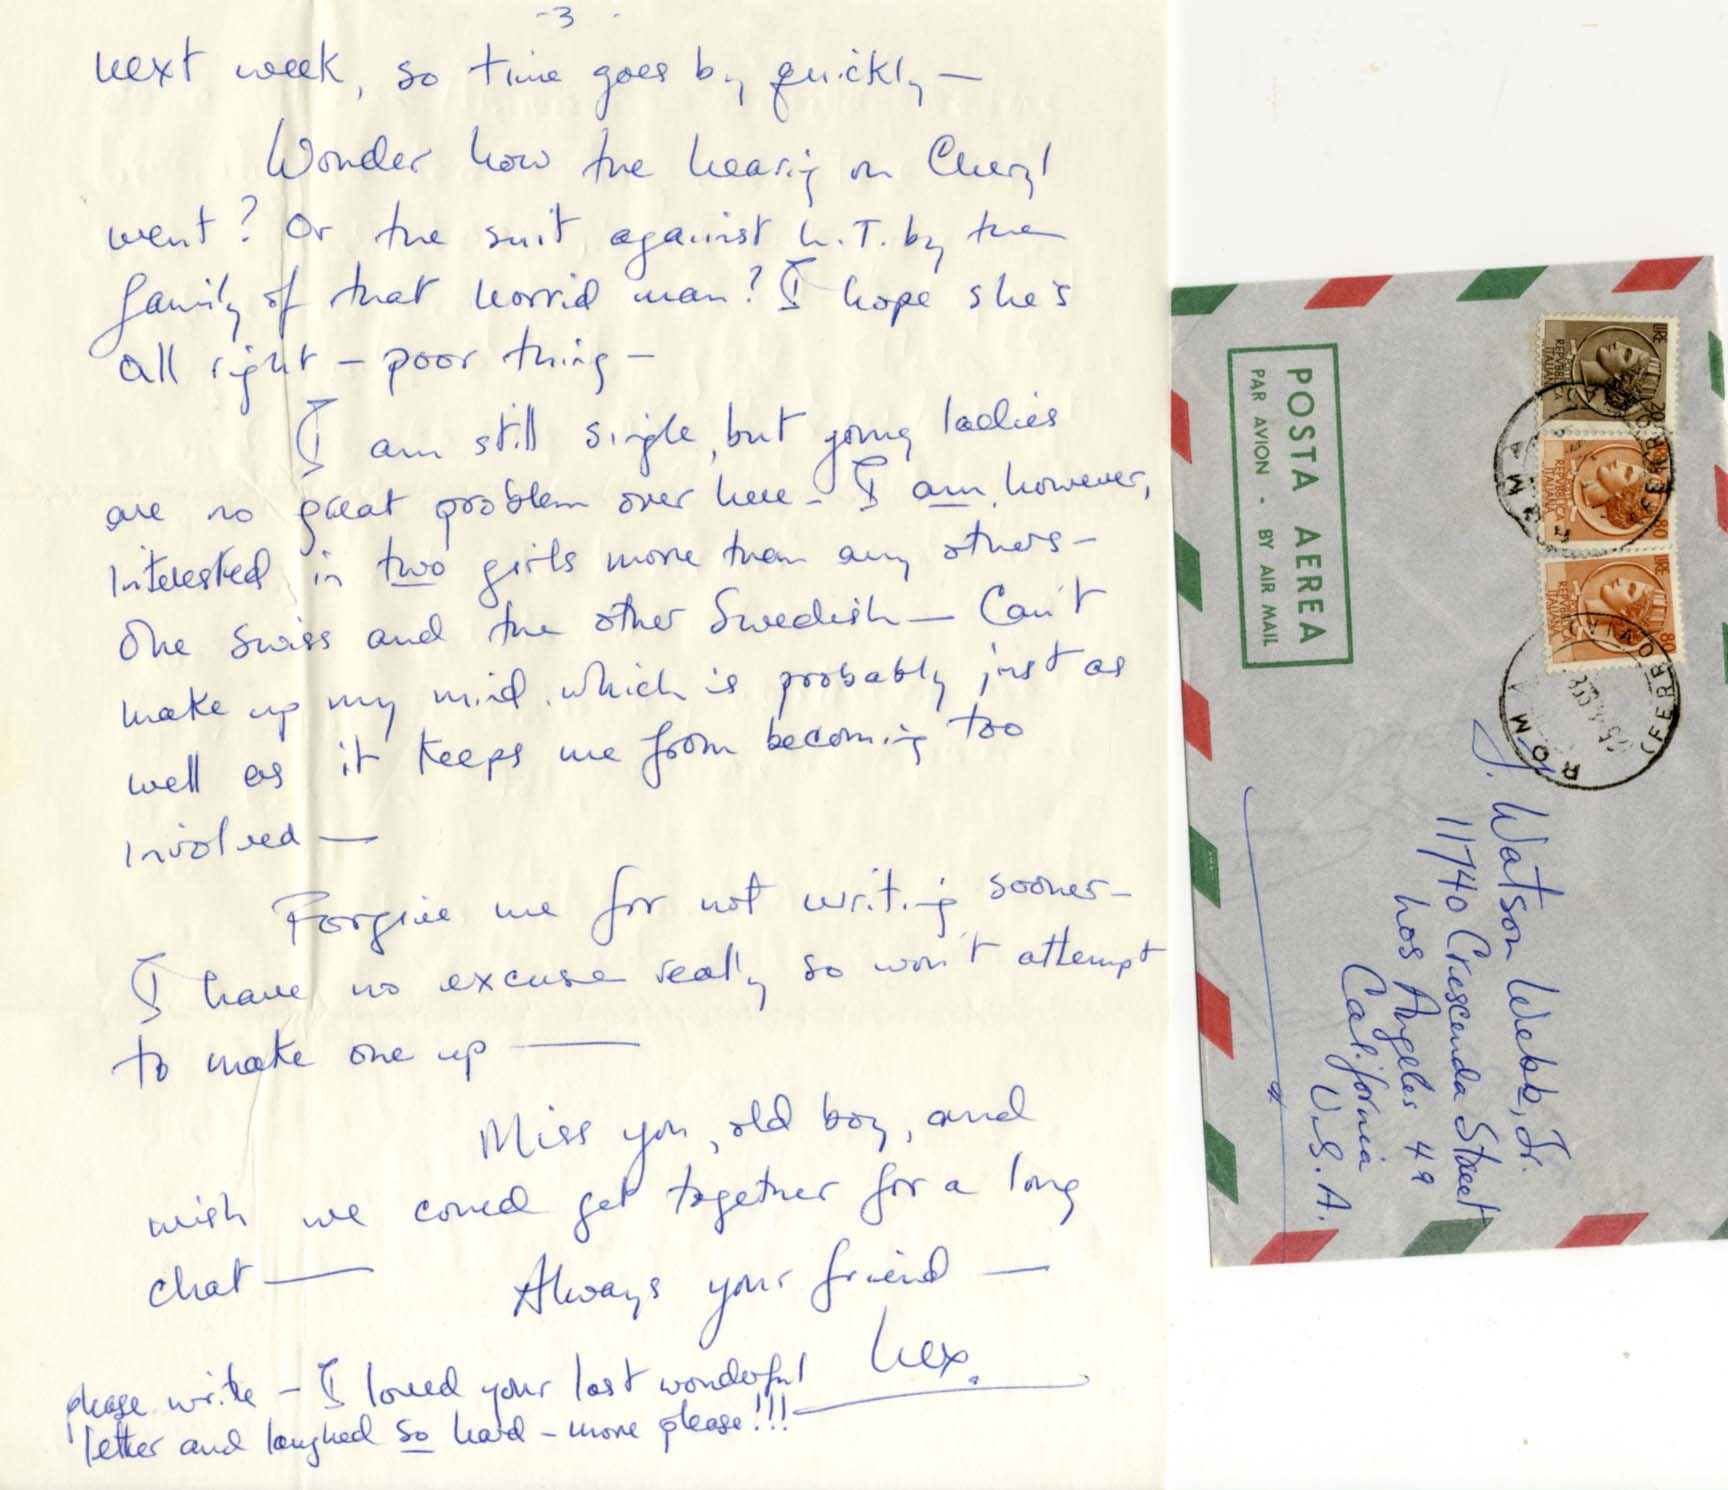 -3-
next week, so time goes by quickly —
Wonder how the hearing on Cheryl
went? Or the suit against L.T. by the
family of that horrid man? I hope she's
all right — poor thing —
I am still single, but young ladies
are no great problem over here — I am, however,
interested in two girls more than any others —
One Swiss and the other Swedish — Can't
make up my mind which is probably just as
well as it keeps me from becoming too
involved —
Forgive me for not writing sooner —
I have no excuse really so won't attempt
to make one up —
Miss you, old boy, and
wish we could get together for a long
chat — Always your friend —
Lex.
please write — I loved your last wonderful
letter and laughed so hard — more please!!!
POSTA AEREA
PAR AVION - BY AIR MAIL
LIRE 20
REPVBBLICA
ITALIANA
LIRE 80
REPVBBLICA
ITALIANA
LIRE 80
REPVBBLICA
ITALIANA
ROMA
ROMA (FERROVIA)
J. Watson Webb, Jr.
11740 Crescenda Street
Los Angeles 49
California
U.S.A.